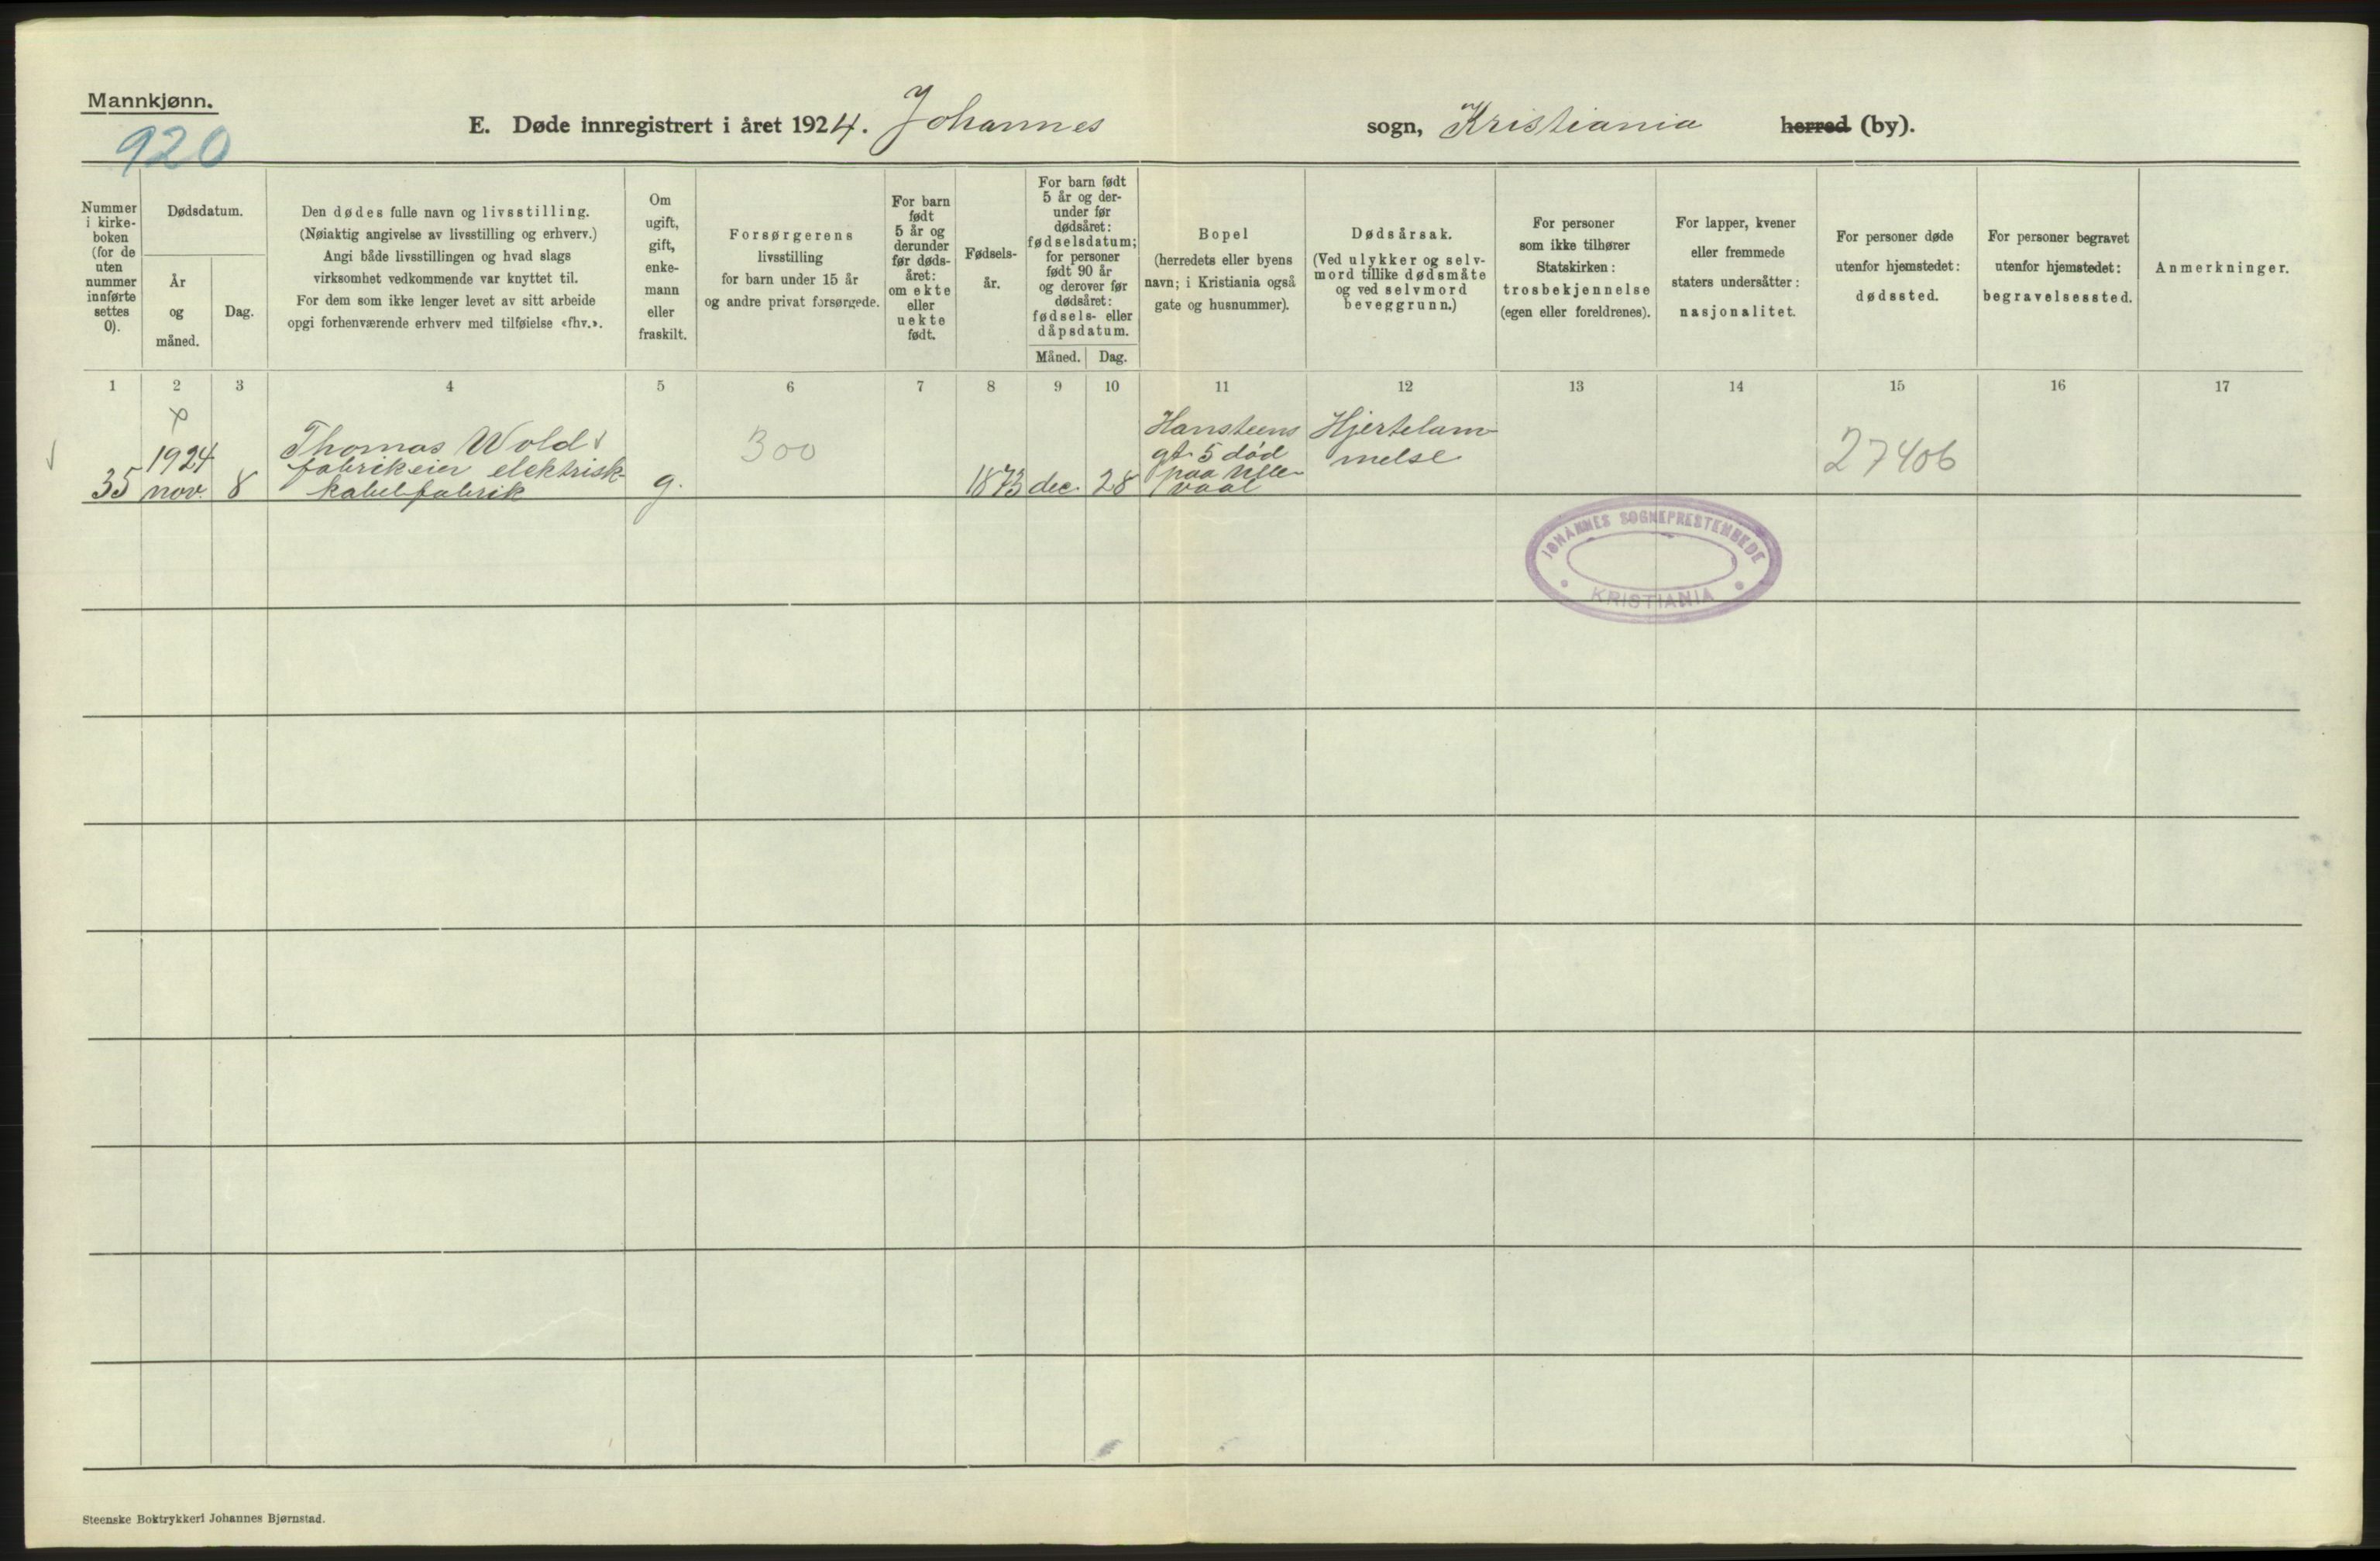 Mannkjønn.
920
E. Døde innregistrert i året 1924. Johannes sogn, Kristiania herred (by).
Nummer
i kirke-
boken
(for de
uten
nummer
innførte
settes
0).
Dødsdatum.
År
og
måned.
Dag.
Den dødes fulle navn og livsstilling.
(Nøiaktig angivelse av livsstilling og erhverv.)
Angi både livsstillingen og hvad slags
virksomhet vedkommende var knyttet til.
For dem som ikke lenger levet av sitt arbeide
opgi forhenværende erhverv med tilføielse «fhv.».
Om
ugift,
gift,
enke-
mann
eller
fraskilt.
Forsørgerens
livsstilling
for barn under 15 år
og andre privat forsørgede.
For barn
født
5 år og
derunder
før døds-
året:
om ekte
eller
uekte
født.
Fødsels-
år.
For barn født
5 år og der-
under før
dødsåret:
fødselsdatum;
for personer
født 90 år
og derover før
dødsåret:
fødsels- eller
dåpsdatum.
Måned. Dag.
Bopel
(herredets eller byens
navn; i Kristiania også
gate og husnummer).
Dødsårsak.
(Ved ulykker og selv-
mord tillike dødsmåte
og ved selvmord
beveggrunn.)
For personer
som ikke tilhører
Statskirken:
trosbekjennelse
(egen eller foreldrenes).
For lapper, kvener
eller fremmede
staters undersåtter:
nasjonalitet.
For personer døde
utenfor hjemstedet:
dødssted.
For personer begravet
utenfor hjemstedet:
begravelsessted.
Anmerkninger.
1 2 3 4 5 6 7 8 9 10 11 12 13 14 15 16 17
35
1924
nov.
8
Thomas Wold
fabrikeier elektrisk-
kabelfabrik
g.
300
1873
dec.
28
Hansteens
gt. 5 død
paa Ulle-
vaal
Hjertelam-
melse
27406
JOHANNES SOGNEPRESTEMBEDE
KRISTIANIA
Steenske Boktrykkeri Johannes Bjørnstad.